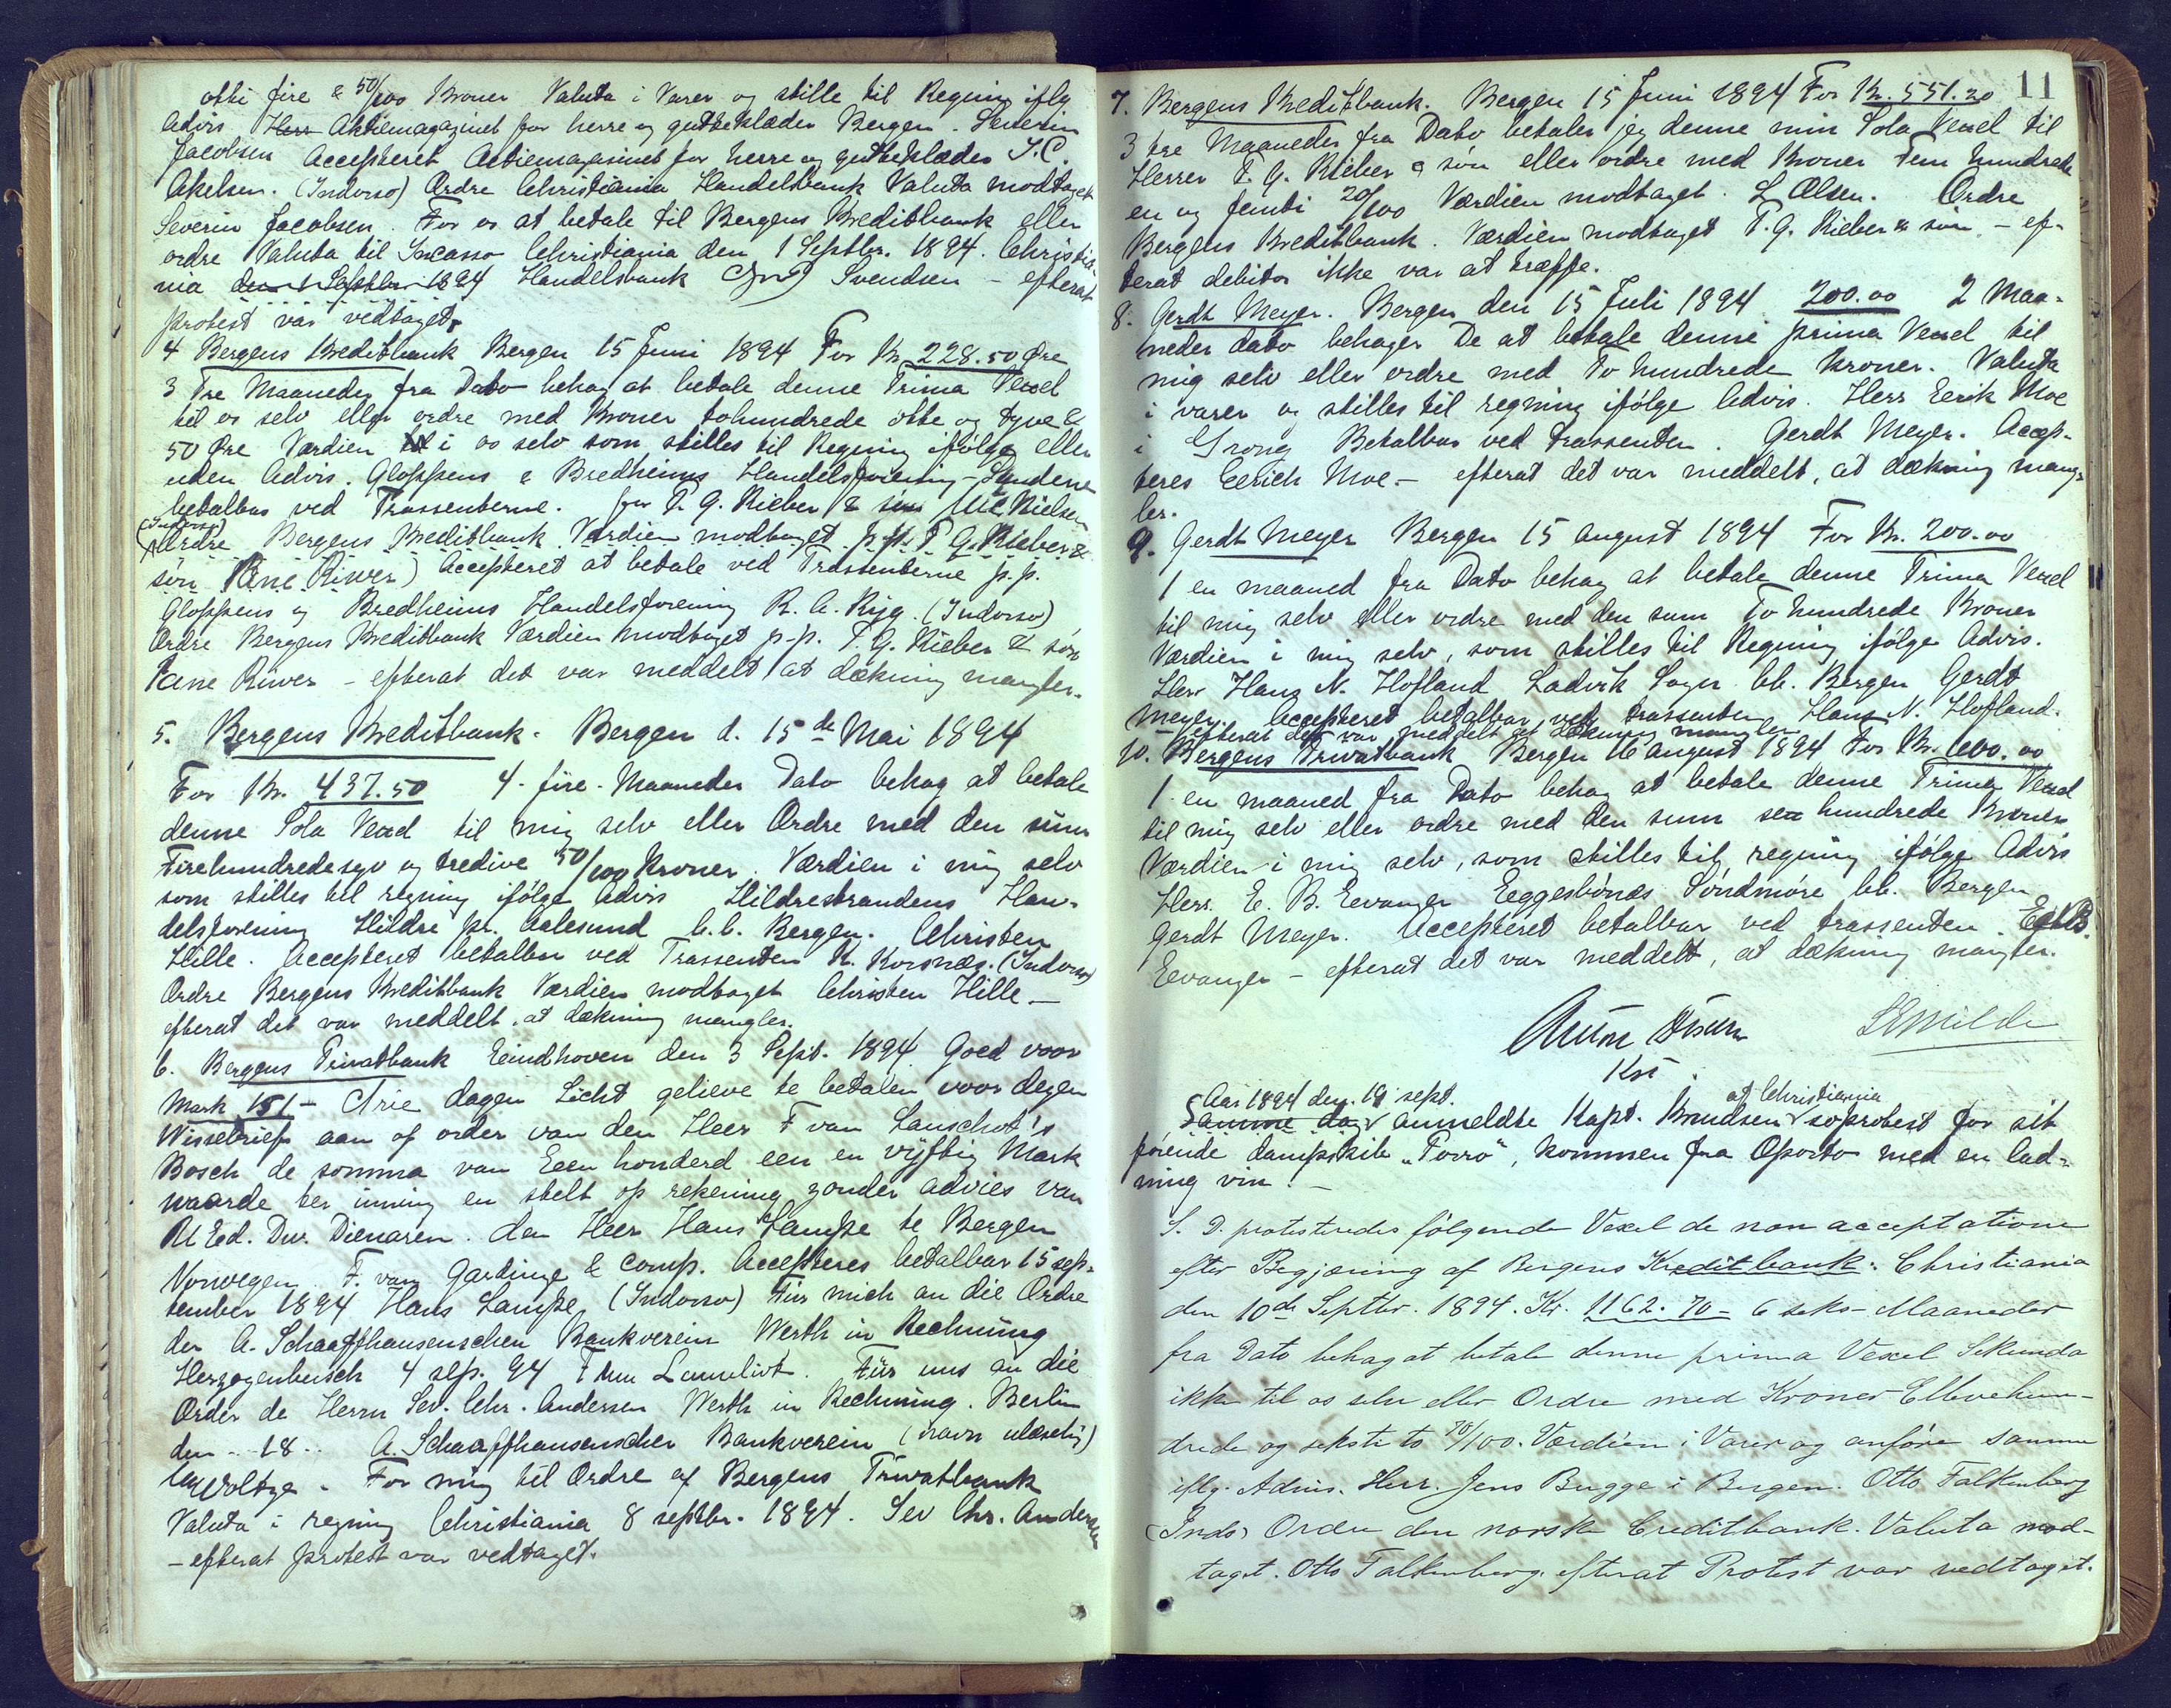 otti fire & 50/100 Kroner Valuta i Varer og stille til Regning iflg
Advis Herr Aktiemagazinet for herre og guttekleder Bergen. Severin
Jacobsen Accepteret Actiemagasinet for herre og guttekleder S. C.
Akelsen. (Indorso) Ordre Christiania Handelsbank Valuta modtaget
Severin Jacobsen. For os at betale til Bergens Kreditbank eller
ordre Valuta til Incasso Christiania den 1 Septbr. 1894. Christia-
nia den 1 Septbr 1894 Handelsbank Svendsen - efterat
protest var vedtaget.
4 Bergens Kreditbank Bergen 15 Juni 1894 For Kr 228.50 Øre
3 Tre Maaneder fra Dato behag at betale denne Prima Vexel
til os selv eller ordre med Kroner tohundrede otte og tyve &
50 Øre Værdien i os selv som stilles til Regning ifølge eller
uden Advis. Gloppens & Bredheims Handelsforening - Sandene
betalbar ved Trassenterne. for P. G. Rieber & søn Nielsen
(Indorso) Ordre Bergens Kreditbank Værdien modtaget p.p. P. G. Rieber &
søn Pane River) Accepteret at betale ved Trassenterne p.p.
Gloppens og Bredheims Handelsforening R. A. Ryg. (Indorso)
Ordre Bergens Kreditbank Værdien modtaget p.p. P. G. Rieber & søn
Pane River - efterat det var meddelt at dækning mangler.
5. Bergens Kreditbank. Bergen d. 15de Mai 1894
For Kr. 437.50 4-fire-Maaneder Dato behag at betale
denne Sola Vexel til mig selv eller Ordre med den sum
Firehundredesyv og tredive 50/100 Kroner. Værdien i mig selv
som stilles til regning ifølge Advis Hildrestrandens Han-
delsforening Hildre pr. Aalesund b.b. Bergen. Christen
Hille. Accepteret betalbar ved Trassenten K. Korsnæs. (Indorso)
Ordre Bergens Kreditbank Værdien modtaget Christen Hille -
efterat det var meddelt, at dækning mangler.
6. Bergens Privatbank Eeindhoven den 3 Sept. 1894 Goed voor
Mark 151 - Drie dagen Zicht gelieve te betalen voor dezen
Wisselbrief aan of order van den Heer F van Lanschot's
Bosch de somma van Eeen honderd een en vijftig Mark
waarde ter inning en stelt op rekening zonder advies van
Ul Ed. Dw. Dienaren. den Heer Hans Lampe te Bergen
Norwegen. F. van Gardinge & Comp. Accepteres betalbar 15 sep-
tember 1894 Hans Lampe, (Indorso) Für mich an die Ordre
der A. Schaaffhausenschen Bankverein Werth in Rechnung
Herzogenbusch 4 sep. 94 F van Lanschot. Für uns an die
Order de Herrn Sev. Chr. Andersen Werth in Rechnung. Berlin
den .. 18.. A. Schaaffhausenscher Bankverein (navn ulæselig)
For mig til Ordre af Bergens Privatbank
Valuta i regning Christiania 8 septbr. 1894. Sev Chr. Andersen
- efterat protest var vedtaget.
11
7. Bergens Kreditbank. Bergen 15 Juni 1894 For Kr. 551.20
3 tre Maaneder fra Dato betaler jeg denne min Sola Vexel til
Herrer P. G. Rieber & søn eller ordre med Kroner Fem hundrede
en og femti 20/100 Værdien modtaget. L Olsen. Ordre
Bergens Kreditbank. Værdien modtaget P. G. Rieber & søn. - ef-
terat debitor ikke var at træffe.
8. Gerdt Meyer. Bergen den 15 Juli 1894 200.00 2 Maa-
neder dato behager De at betale denne prima Vexel til
mig selv eller ordre med To hundrede kroner. Valuta
i varer og stilles til regning ifølge Advis. Herr Eerik Moe
i Grong Betalbar ved trassenten. Gerdt Meyer. Accep-
teres Eerich Moe - efterat det var meddelt, at dækning mang-
ler.
9. Gerdt Meyer Bergen 15 august 1894 For Kr. 200.00
1 en maaned fra Dato behag at betale denne Prima Vexel
til mig selv eller ordre med den sum To hundrede Kroner
Værdien i mig selv, som stilles til Regning ifølge Advis.
Herr Hans N. Hofland Ladvik Sogn bb. Bergen Gerdt
Meyer. Accepteret betalbar ved trassenten Hans N. Hofland.
- efterat det var meddelt at dækning mangler
10. Bergens Privatbank Bergen 16 august 1894 For Kr. 600.00
1 en maaned fra Dato behag at betale denne Prima Vexel
til mig selv eller ordre med den sum sex hundrede Kroner
Værdien i mig selv, som stilles til regning ifølge Advis
Herr. E. B. Eevanger Eeggesbönæs Söndmöre bb. Bergen
Gerdt Meyer. Accepteret betalbar ved trassenten. E. B.
Eevanger - efterat det var meddelt, at dækning mangler.
SMilde
Kst.
Aar 1894 den 19 sept. af Christiania
Samme dag anmeldte Kapt. Knudsen soprotest for sit
førende dampskib "Porro", kommen fra Oporto med en lad-
ning vin. -
S. D. protesteredes følgende Vexel de non acceptatione
efter Begjæring af Bergens Kreditbank: Christiania
den 10de Septbr. 1894. Kr. 1162.70 - 6 seks - Maaneder
fra Dato behag at betale denne prima Vexel Sekunda
ikke til os selv eller Ordre med Kroner Ellevehun-
drede og seksti to 70/100. Værdien i Varer og anføre samme
iflg. Advis. Herr. Jens Bugge i Bergen. Otto Falkenberg
(Indo) Ordre den norske Creditbank. Valuta mod-
taget. Otto Falkenberg. efterat Protest var vedtaget.